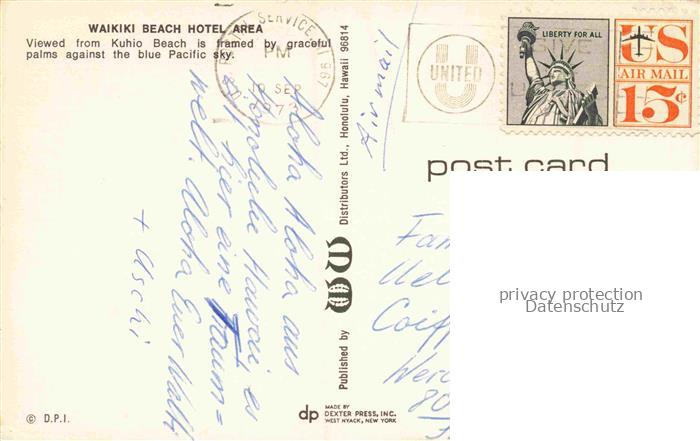 WAIKIKI BEACH HOTEL AREA
Viewed from Kuhio Beach is framed by graceful
palms against the blue Pacific sky.
SERVICE
PM
10 SEP
197
967
UNITED
LIBERTY FOR ALL
US
AIR MAIL
15¢
Airmail
post card
Aloha Aloha aus
Honolulu Hawaii, es
ist hier eine Traum=
welt. Aloha Euer Walti
+ Uschi
Published by WW Distributors Ltd., Honolulu, Hawaii 96814
Fam
Coiff
80
privacy protection
Datenschutz
© D.P.I.
dp MADE BY
DEXTER PRESS, INC.
WEST NYACK, NEW YORK